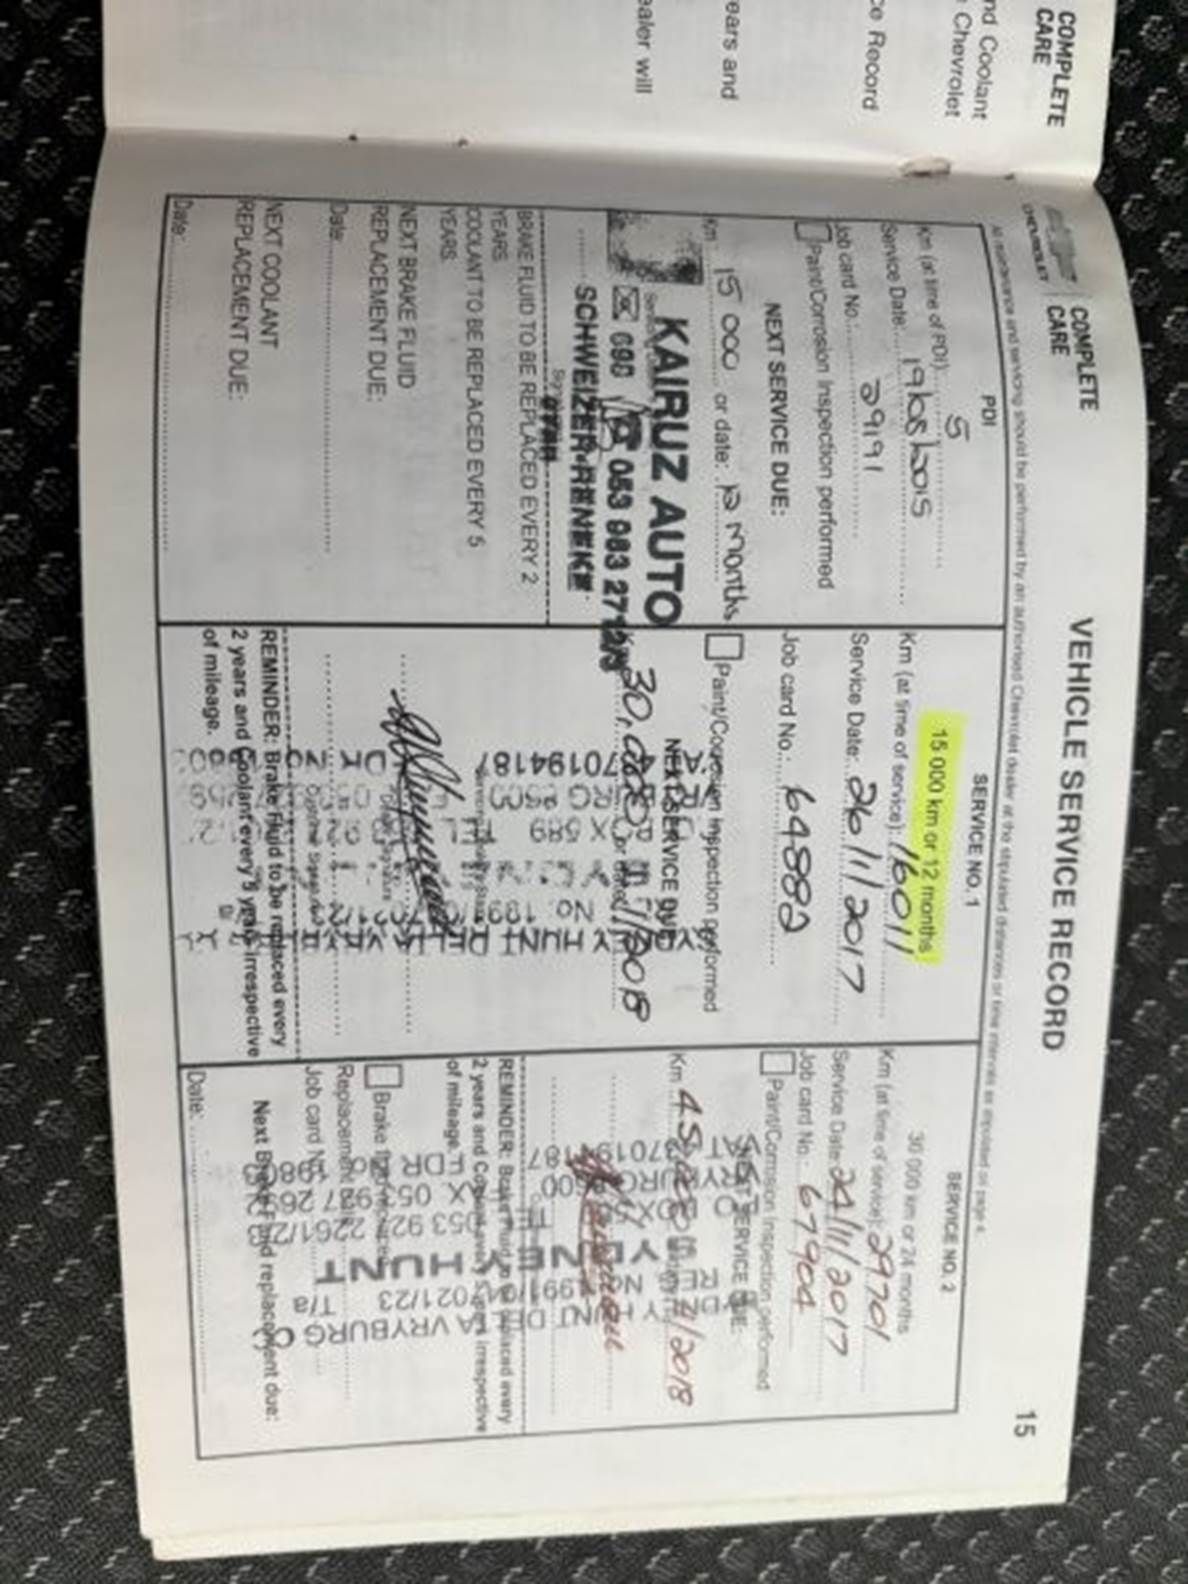 COMPLETE
CARE
nd Coolant
Chevrolet
ce Record
ears and
ealer will
CHEVROLET
COMPLETE
CARE
VEHICLE SERVICE RECORD
15
All maintenance and servicing should be performed by an authorised Chevrolet dealer at the stipulated distances or time intervals as stipulated on page 4.
PDI
Km (at time of PDI): 5
Service Date: 19/08/2015
Job card No.: 29191
Paint/Corrosion Inspection performed
NEXT SERVICE DUE:
Km 15 000 or date: 12 months
KAIRUZ AUTO
690 053 963 2712/3
SCHWEIZER-RENEKE
BRAKE FLUID TO BE REPLACED EVERY 2
YEARS
COOLANT TO BE REPLACED EVERY 5
YEARS
NEXT BRAKE FLUID
REPLACEMENT DUE:
Date:
NEXT COOLANT
REPLACEMENT DUE:
Date:
SERVICE NO. 1
15 000 km or 12 months
Km (at time of service): 16011
Service Date: 26/11/2017
Job card No.: 64882
Paint/Corrosion Inspection performed
NEXT SERVICE DUE:
30,000 or 11/2018
REMINDER: Brake Fluid to be replaced every
2 years and Coolant every 5 years irrespective
of mileage.
SERVICE NO. 2
30 000 km or 24 months
Km (at time of service): 29701
Service Date: 24/11/2017
Job card No.: 67904
Paint/Corrosion Inspection performed
NEXT SERVICE DUE:
Km 45 000 11/2018
SYDNEY HUNT DELTA VRYBURG CC
T/a
SYDNEY HUNT
053 927 2261/2/3
VRYBURG 8600
REMINDER: Brake Fluid to be replaced every
2 years and Coolant every 5 years irrespective
of mileage.
Brake fluid
Replacement
Job card N
Next Brake Fluid replacement due:
Date: